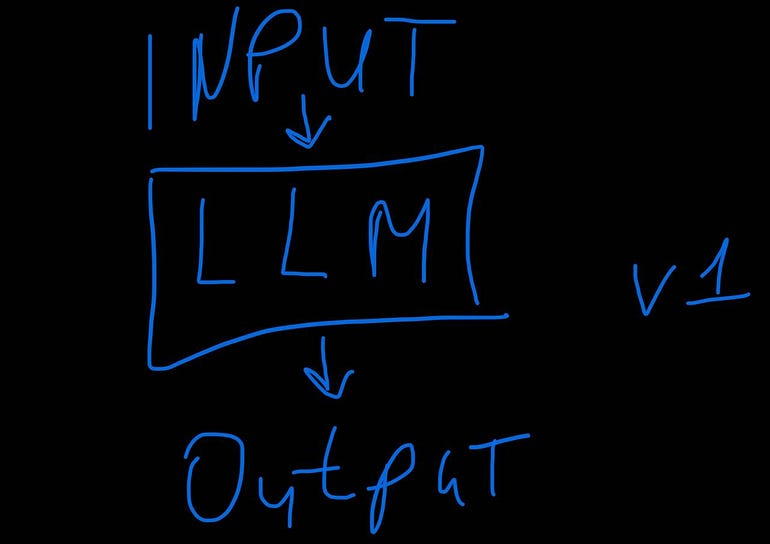 INPUT
LLM
v1
OutpuT